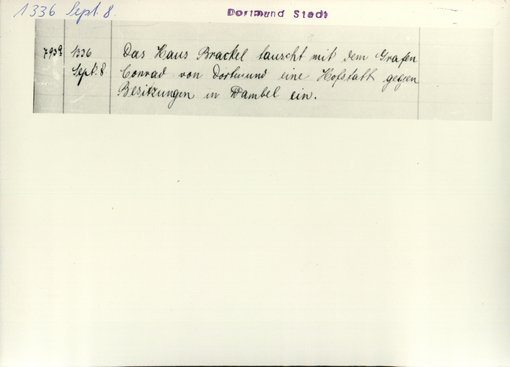 1336 Sept. 8.
Dortmund Stadt
1336 Sept. 8
Das Haus Brackel tauscht mit dem Grafen
Conrad von Dortmund eine Hofstatt gegen
Besitzungen in Wambel ein.